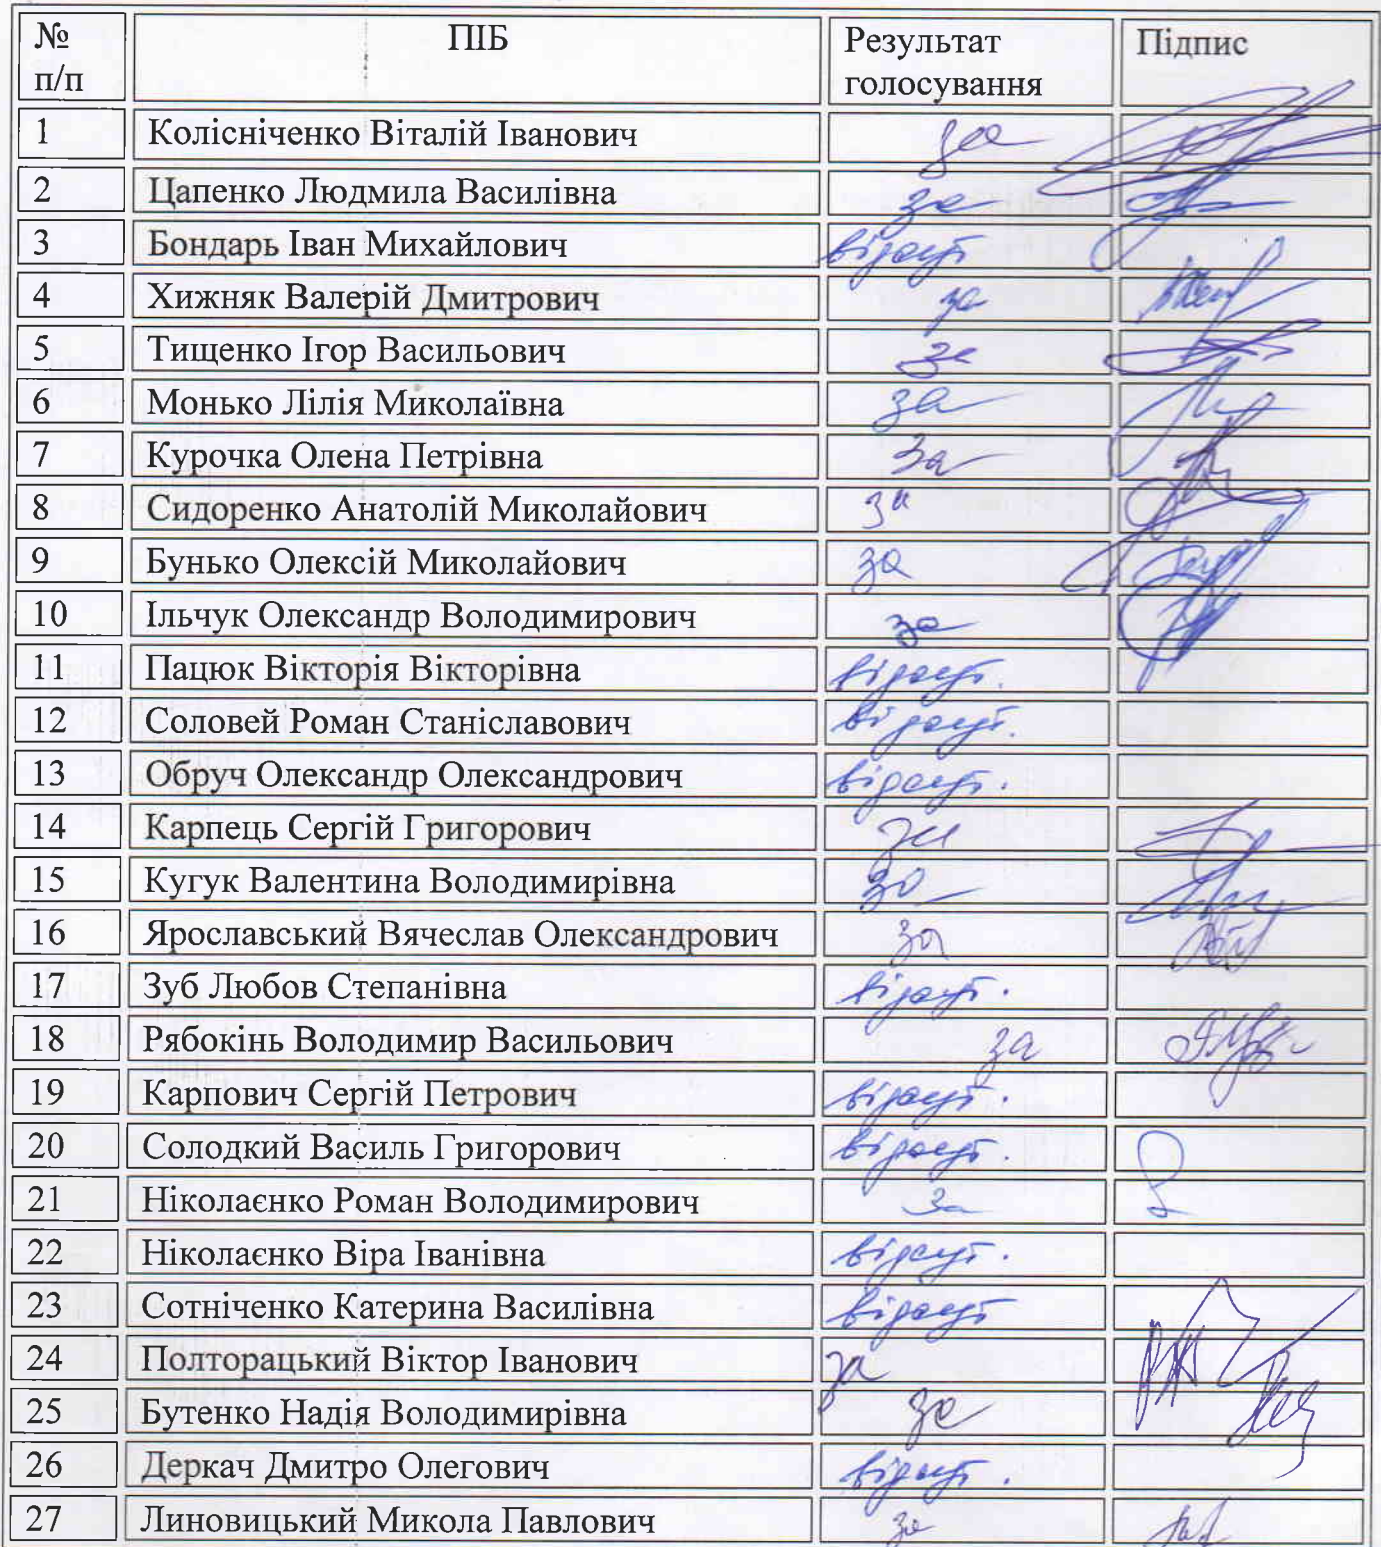 № п/п ПІБ Результат голосування Підпис
1 Колісніченко Віталій Іванович за
2 Цапенко Людмила Василівна за
3 Бондарь Іван Михайлович відсут
4 Хижняк Валерій Дмитрович за
5 Тищенко Ігор Васильович за
6 Монько Лілія Миколаївна за
7 Курочка Олена Петрівна За
8 Сидоренко Анатолій Миколайович за
9 Бунько Олексій Миколайович за
10 Ільчук Олександр Володимирович за
11 Пацюк Вікторія Вікторівна відсут.
12 Соловей Роман Станіславович відсут.
13 Обруч Олександр Олександрович відсут.
14 Карпець Сергій Григорович за
15 Кугук Валентина Володимирівна за
16 Ярославський Вячеслав Олександрович за
17 Зуб Любов Степанівна відсут.
18 Рябокінь Володимир Васильович за
19 Карпович Сергій Петрович відсут.
20 Солодкий Василь Григорович відсут.
21 Ніколаєнко Роман Володимирович За
22 Ніколаєнко Віра Іванівна відсут.
23 Сотніченко Катерина Василівна відсут
24 Полторацький Віктор Іванович за
25 Бутенко Надія Володимирівна за
26 Деркач Дмитро Олегович відсут.
27 Линовицький Микола Павлович за